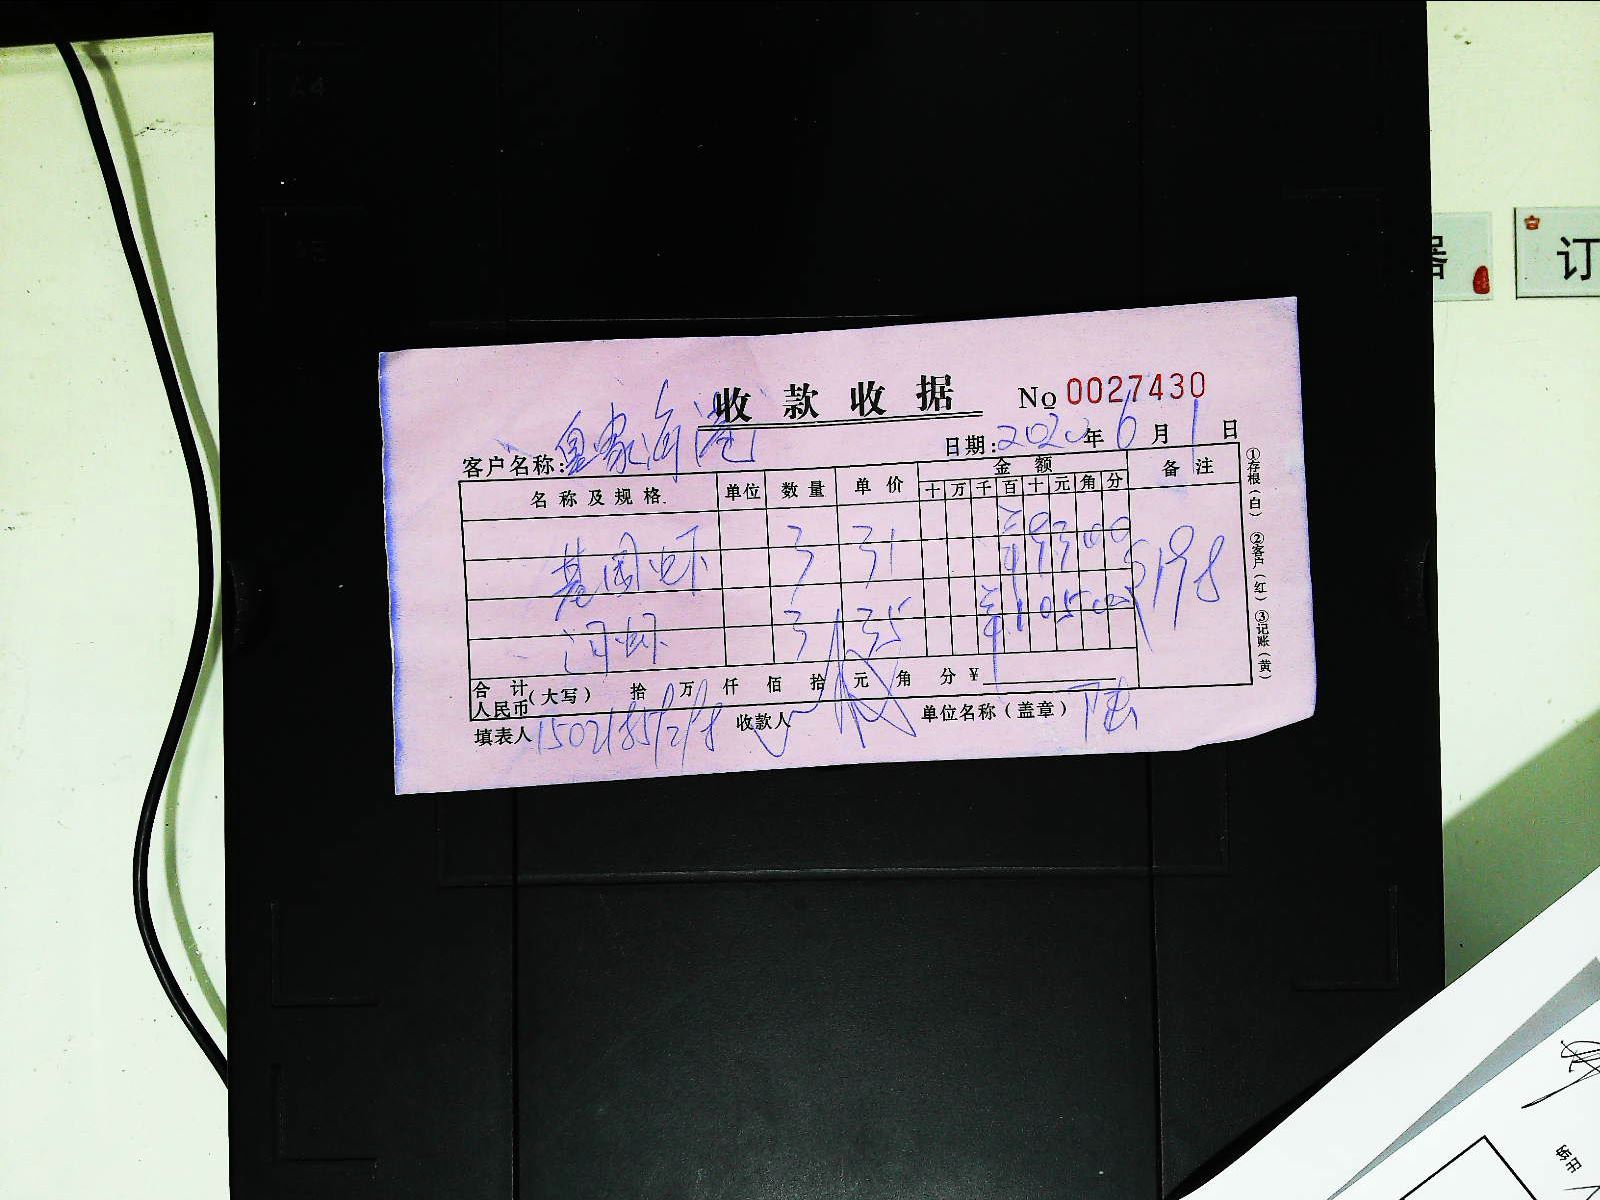 A4
器
订
收款收据 No 0027430
客户名称:皇家海港 日期:2020年6月1日
名称及规格 单位 数量 单价 金额 备注
十 万 千 百 十 元 角 分
基围虾 3 31 ¥9300
河虾 3 35 ¥10500
198
合计人民币(大写) 拾 万 仟 佰 拾 元 角 分 ¥
填表人 收款人 单位名称(盖章)
①存根(白) ②客户(红) ③记账(黄)